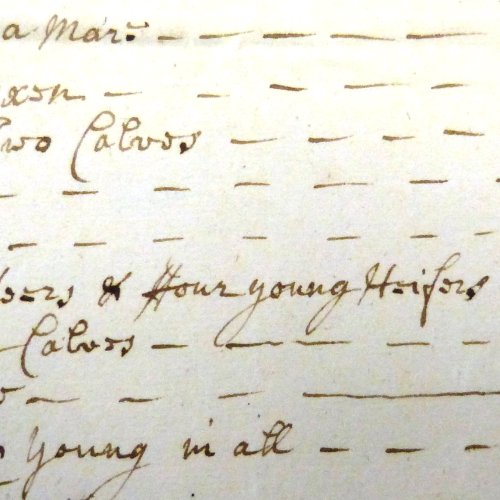 a Mare
xen
two Calves
eers & ffour young Heifers
Calves
young in all